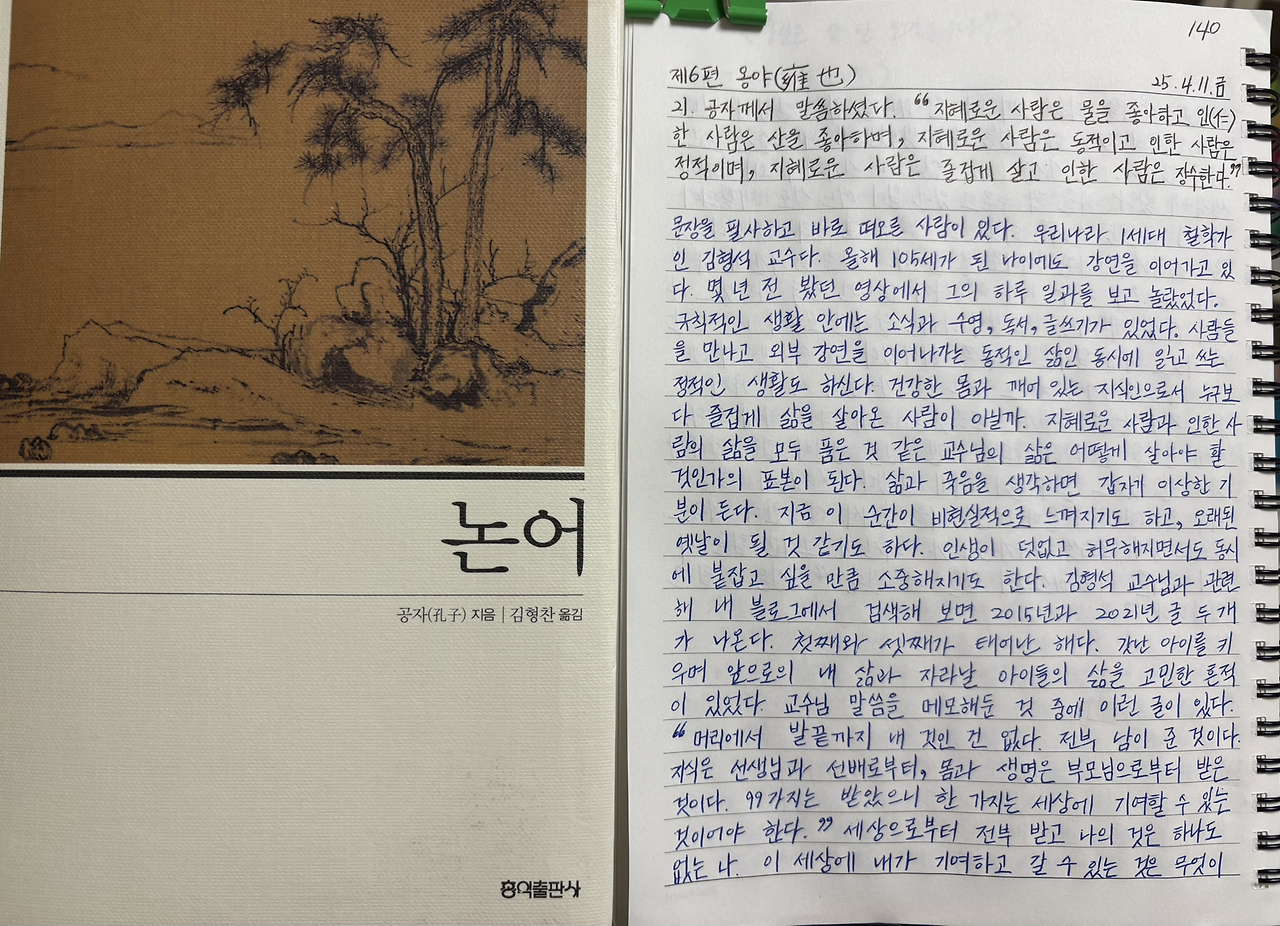 논어
공자(孔子) 지음 | 김형찬 옮김
홍익출판사
140
제6편 옹야(雍也)
25.4.11.금
21. 공자께서 말씀하셨다. “지혜로운 사람은 물을 좋아하고 인(仁)
한 사람은 산을 좋아하며, 지혜로운 사람은 동적이고 인한 사람은
정적이며, 지혜로운 사람은 즐겁게 살고 인한 사람은 장수한다.”
문장을 필사하고 바로 떠오른 사람이 있다. 우리나라 1세대 철학가
인 김형석 교수다. 올해 105세가 된 나이에도 강연을 이어가고 있
다. 몇 년 전 봤던 영상에서 그의 하루 일과를 보고 놀랐었다.
규칙적인 생활 안에는 소식과 수영, 독서, 글쓰기가 있었다. 사람들
을 만나고 외부 강연을 이어나가는 동적인 삶인 동시에 읽고 쓰는
정적인 생활도 하신다. 건강한 몸과 깨어 있는 지식인으로서 누구보
다 즐겁게 삶을 살아온 사람이 아닐까. 지혜로운 사람과 인한 사
람의 삶을 모두 품은 것 같은 교수님의 삶은 어떻게 살아야 할
것인가의 표본이 된다. 삶과 죽음을 생각하면 갑자기 이상한 기
분이 든다. 지금 이 순간이 비현실적으로 느껴지기도 하고, 오래된
옛날이 될 것 같기도 하다. 인생이 덧없고 허무해지면서도 동시
에 붙잡고 싶을 만큼 소중해지기도 한다. 김형석 교수님과 관련
해 내 블로그에서 검색해 보면 2015년과 2021년 글 두 개
가 나온다. 첫째와 셋째가 태어난 해다. 갓난 아이를 키
우며 앞으로의 내 삶과 자라날 아이들의 삶을 고민한 흔적
이 있었다. 교수님 말씀을 메모해둔 것 중에 이런 글이 있다.
“머리에서 발끝까지 내 것인 건 없다. 전부 남이 준 것이다.
지식은 선생님과 선배로부터, 몸과 생명은 부모님으로부터 받은
것이다. 99가지는 받았으니 한 가지는 세상에 기여할 수 있는
것이어야 한다.” 세상으로부터 전부 받고 나의 것은 하나도
없는 나. 이 세상에 내가 기여하고 갈 수 있는 것은 무엇이